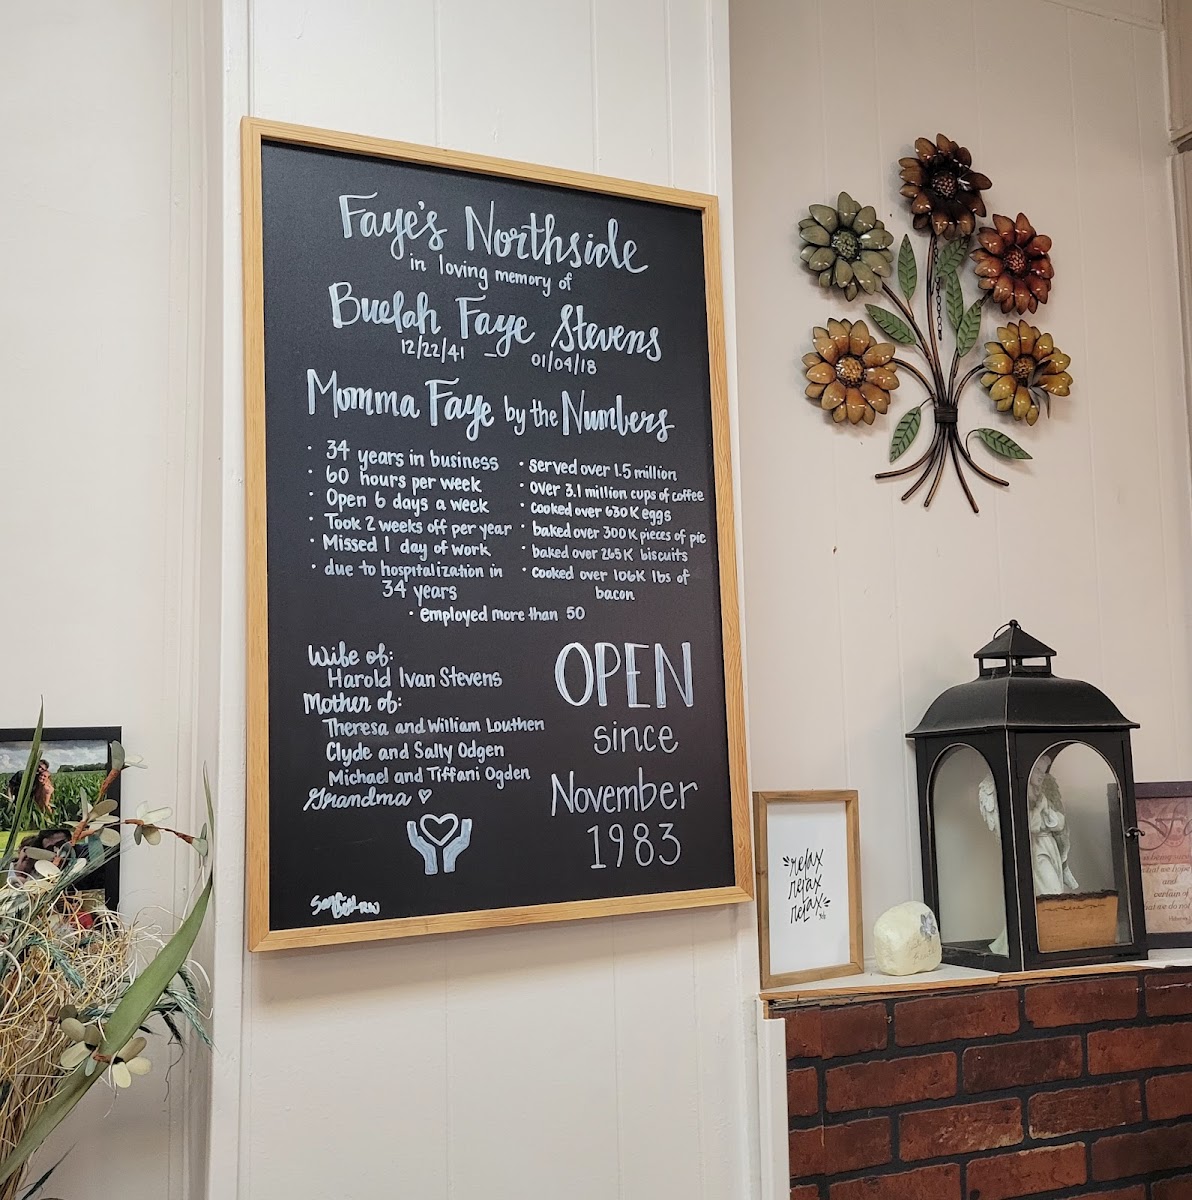 Faye's Northside
in loving memory of
Buelah Faye Stevens
12/22/41 - 01/04/18
Momma Faye by the Numbers
· 34 years in business
· 60 hours per week
· Open 6 days a week
· Took 2 weeks off per year
· Missed 1 day of work
· due to hospitalization in
34 years
· served over 1.5 million
· over 3.1 million cups of coffee
· cooked over 630K eggs
· baked over 300K pieces of pie
· baked over 265K biscuits
· cooked over 106K lbs of
bacon
· employed more than 50
Wife of:
Harold Ivan Stevens
Mother of:
Theresa and William Louthen
Clyde and Sally Odgen
Michael and Tiffani Ogden
Grandma ♡
OPEN
since
November
1983
relax
relax
relax
being sure
what we hope
and
certain of
what we do not